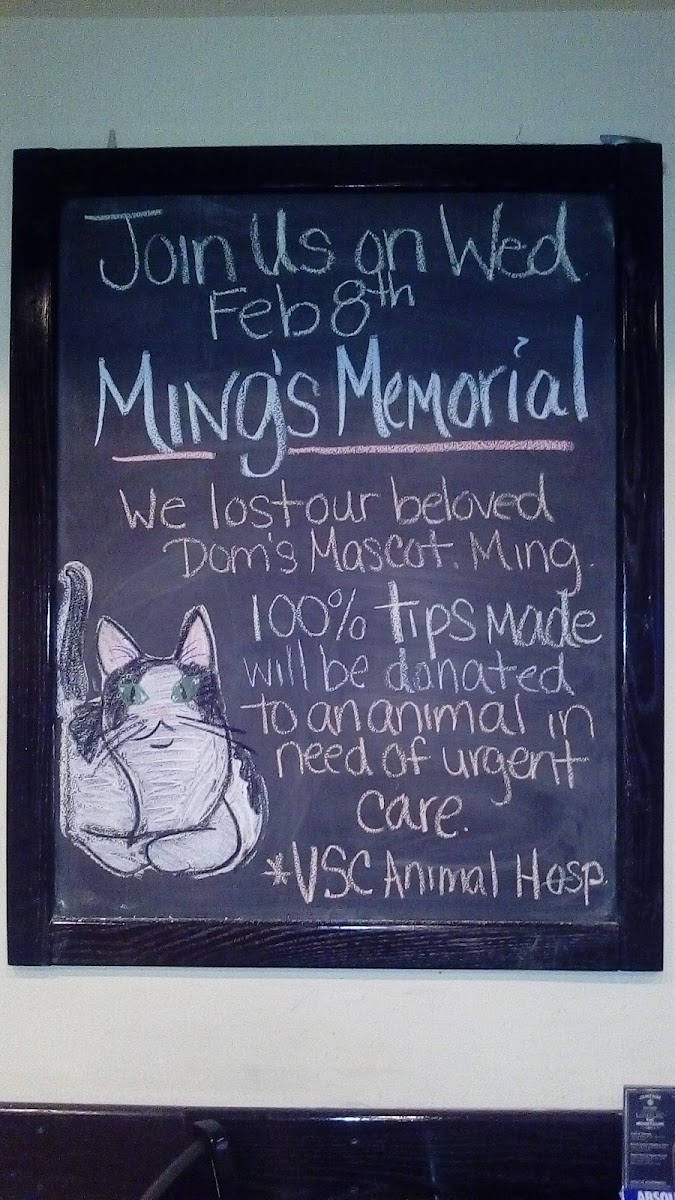 Join Us on Wed
Feb 8th
Ming's Memorial
We lost our beloved
Dom's Mascot. Ming.
100% tips made
will be donated
to an animal in
need of urgent
care.
*VSC Animal Hosp.
ABSOL